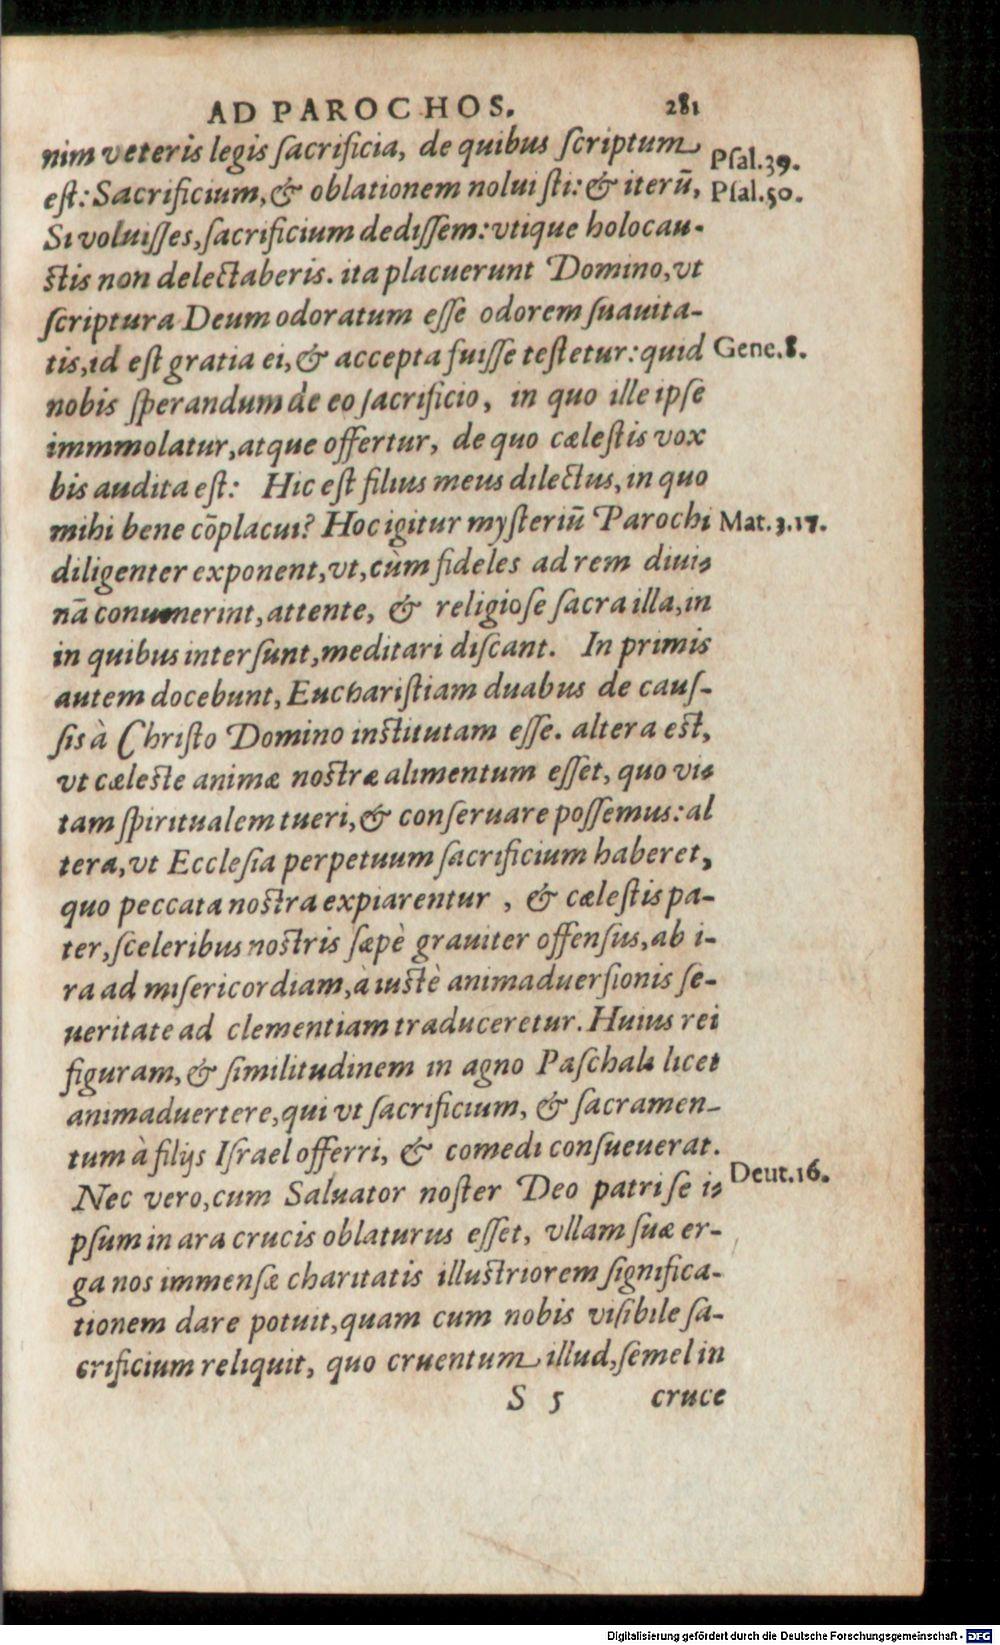 AD PAROCHOS. 281
nim veteris legis ſacrificia, de quibus ſcriptum Pſal.39.
eſt: Sacrificium, & oblationem noluiſti: & iterū, Pſal.50.
Si voluiſſes, ſacrificium dediſſem: vtique holocau-
ſtis non delectaberis. ita placuerunt Domino, vt
ſcriptura Deum odoratum eſſe odorem ſuauita-
tis, id eſt gratia ei, & accepta fuiſſe teſtetur: quid Gene.8.
nobis ſperandum de eo ſacrificio, in quo ille ipſe
immmolatur, atque offertur, de quo cæleſtis vox
bis audita eſt: Hic eſt filius meus dilectus, in quo
mihi bene cōplacui? Hoc igitur myſteriū Parochi Mat.3.17.
diligenter exponent, vt, cùm fideles ad rem diui-
nā conuenerint, attente, & religioſe ſacra illa, in
in quibus interſunt, meditari diſcant. In primis
autem docebunt, Euchariſtiam duabus de cauſ-
ſis à Chriſto Domino inſtitutam eſſe. altera eſt,
vt cæleſte animæ noſtræ alimentum eſſet, quo vi-
tam ſpiritualem tueri, & conſeruare poſſemus: al
tera, vt Eccleſia perpetuum ſacrificium haberet,
quo peccata noſtra expiarentur , & cæleſtis pa-
ter, ſceleribus noſtris ſæpè grauiter offenſus, ab i-
ra ad miſericordiam, à iuſtè animaduerſionis ſe-
ueritate ad clementiam traduceretur. Huius rei
figuram, & ſimilitudinem in agno Paſchali licet
animaduertere, qui vt ſacrificium, & ſacramen-
tum à filijs Iſrael offerri, & comedi conſueuerat.
Deut.16.
Nec vero, cum Saluator noſter Deo patri ſe i-
pſum in ara crucis oblaturus eſſet, vllam ſuæ er-
ga nos immenſæ charitatis illuſtriorem ſignifica-
tionem dare potuit, quam cum nobis viſibile ſa-
crificium reliquit, quo cruentum illud, ſemel in
S 5 cruce
Digitalisierung gefördert durch die Deutsche Forschungsgemeinschaft - DFG